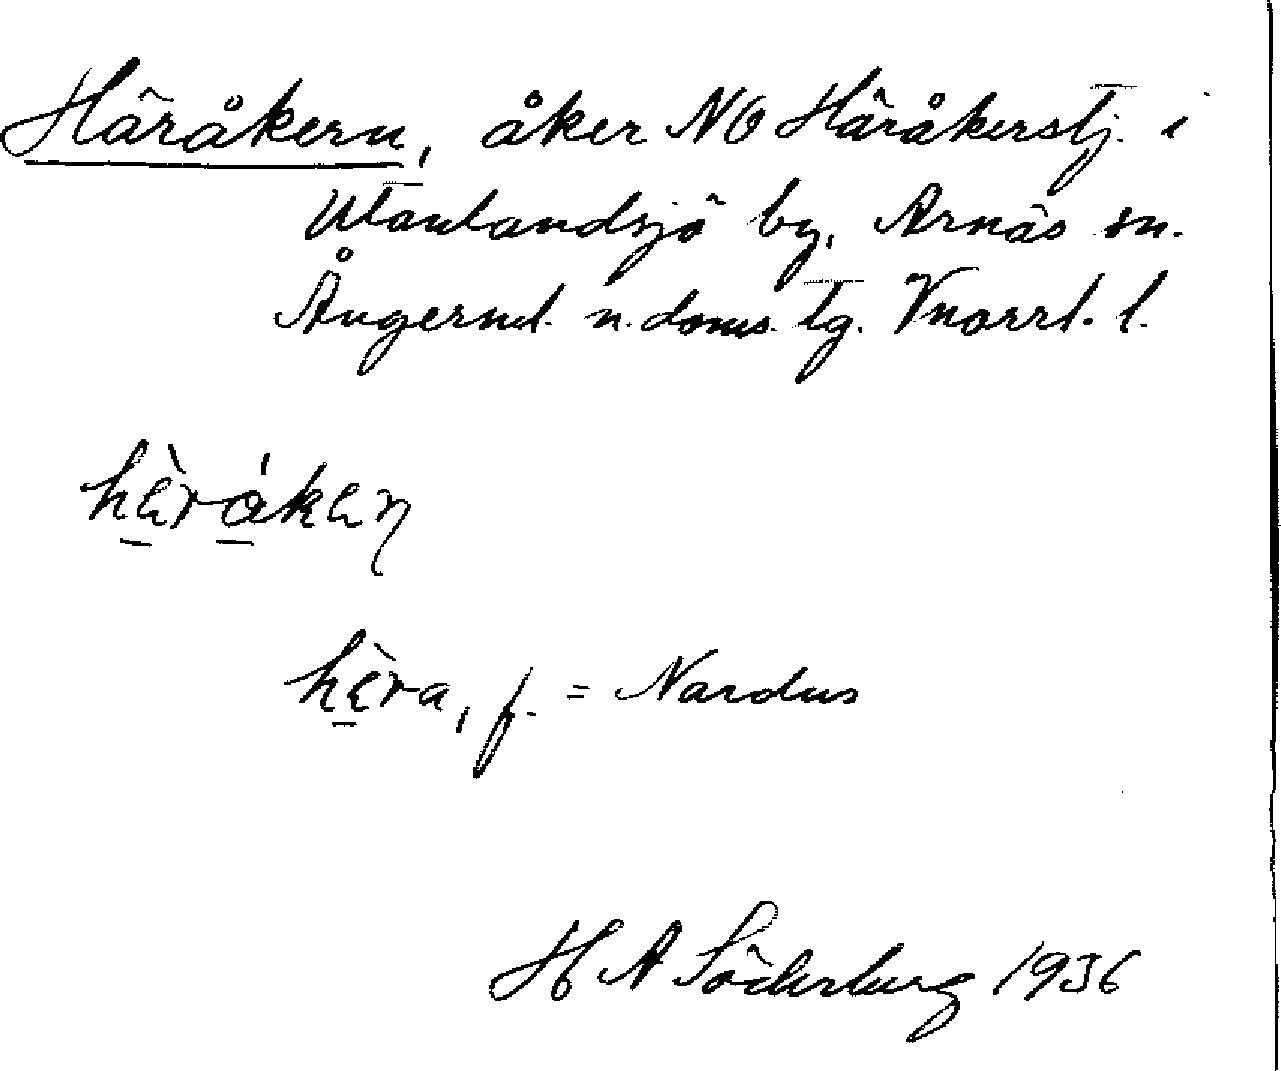 Häråkern, åker NO Häråkerstj. i
Utanlandsjö by, Arnäs sn.
Ångerml. n. doms. tg. Vnorrl. l.
hὲråkεn
hὲra, f. = Nardus
H A Söderberg 1936